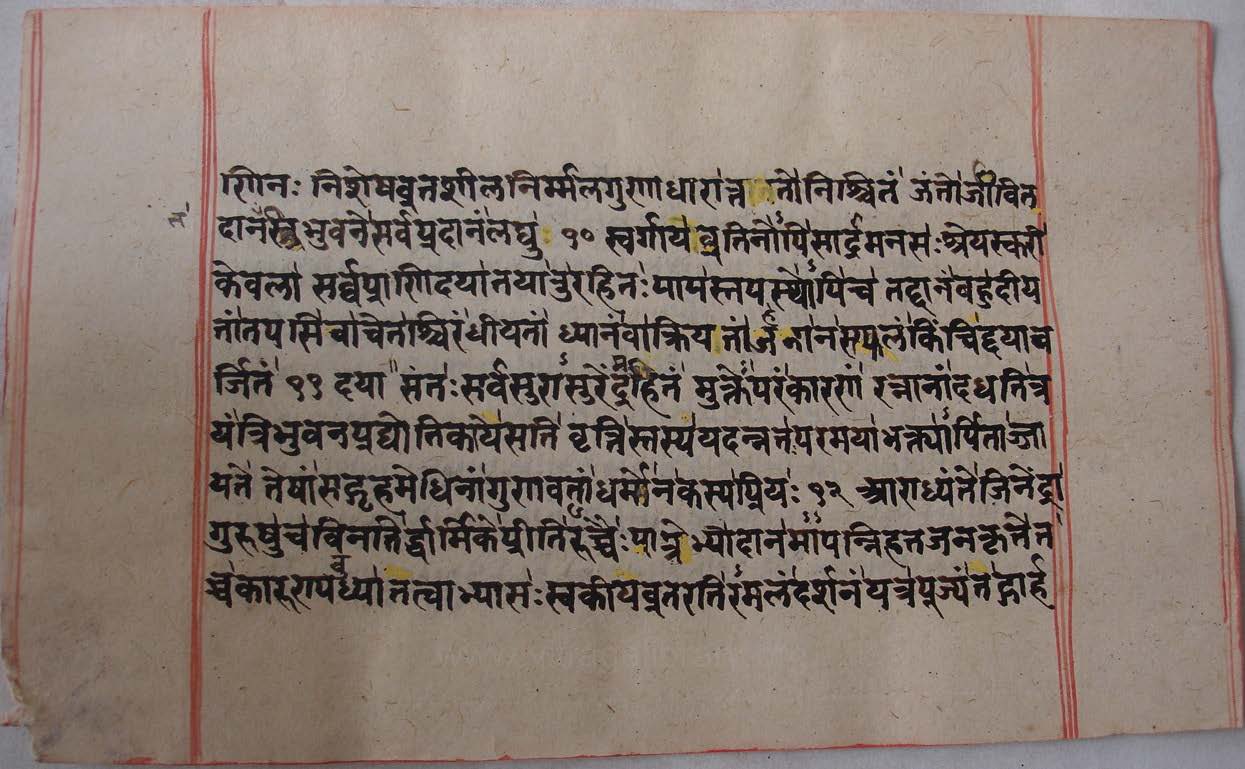 णिनः निःशेषव्रतशीलनिर्म्मलगुणाधारात्ततो निश्चितं जंतोर्जीवित
दानतस्त्रिभुवने सर्वप्रदानं लघु १० स्वर्गाय व्रतिनोऽपि सार्द्रमनसः श्रेयस्करी
केवला सर्व्वप्राणिदया तया तु रहितः पापस्तपस्थोऽपि च तद्दानं बहु दीय
तां तपसि वा चेतश्चिरं धीयतां ध्यानं वा क्रियतां जना न सफलं किंचिद्दयाव
र्जितं ११ संतः सर्वसुरासुरेंद्रमहितं मुक्तेः परं कारणं रत्नानां दधति त्र
यं त्रिभुवनप्रद्योति काये सति वृत्तिस्तस्य यदन्नतः परमया भक्त्यार्पिताज्जा
यते तेषां सद्गृहमेधिनां गुणवतां धर्मो न कस्य प्रियः १२ आराध्यंते जिनेंद्रा
गुरुषु च विनतिर्द्धार्मिके प्रीतिरुच्चैः पात्रेभ्यो दानमापन्निहतजनकृते त
च्च कारुण्यबुध्या तत्वाभ्यासः स्वकीयव्रतरतिरमलं दर्शनं यत्र पूज्यं तद्गार्ह